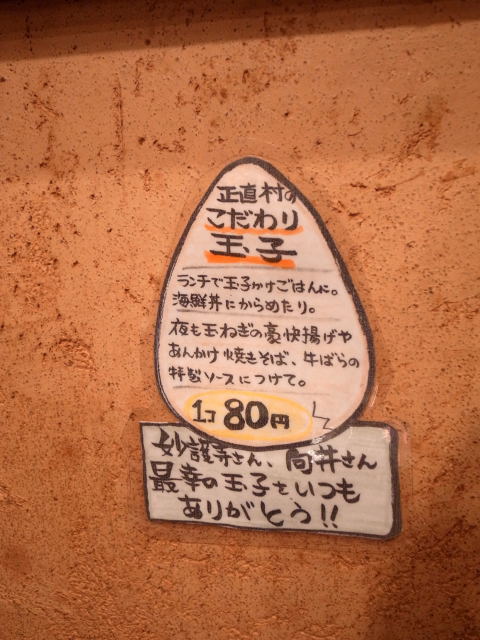 正直村の
こだわり
玉子
ランチで玉子かけごはんに。
海鮮丼にからめたり。
夜も玉ねぎの豪快揚げや
あんかけ焼きそば、牛ばらの
特製ソースにつけて。
1コ80円
妙護寺さん、向井さん
最幸の玉子をいつも
ありがとう!!